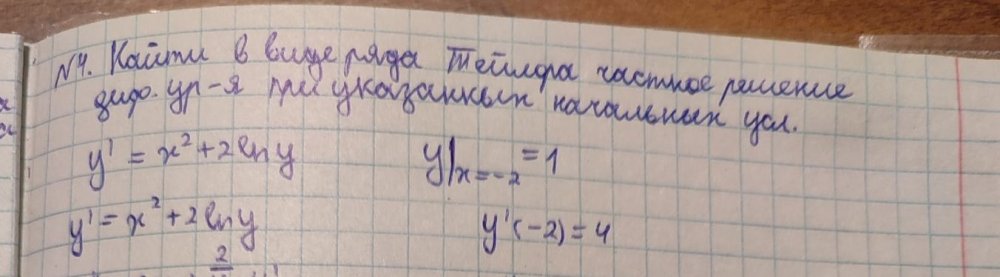 N4. Найти в виде ряда Тейлора частное решение
диф. ур-я при указанных начальных усл.
y' = x² + 2 ln y y|ₓ₌₋₂ = 1
y' = x² + 2 ln y y'(-2) = 4
2